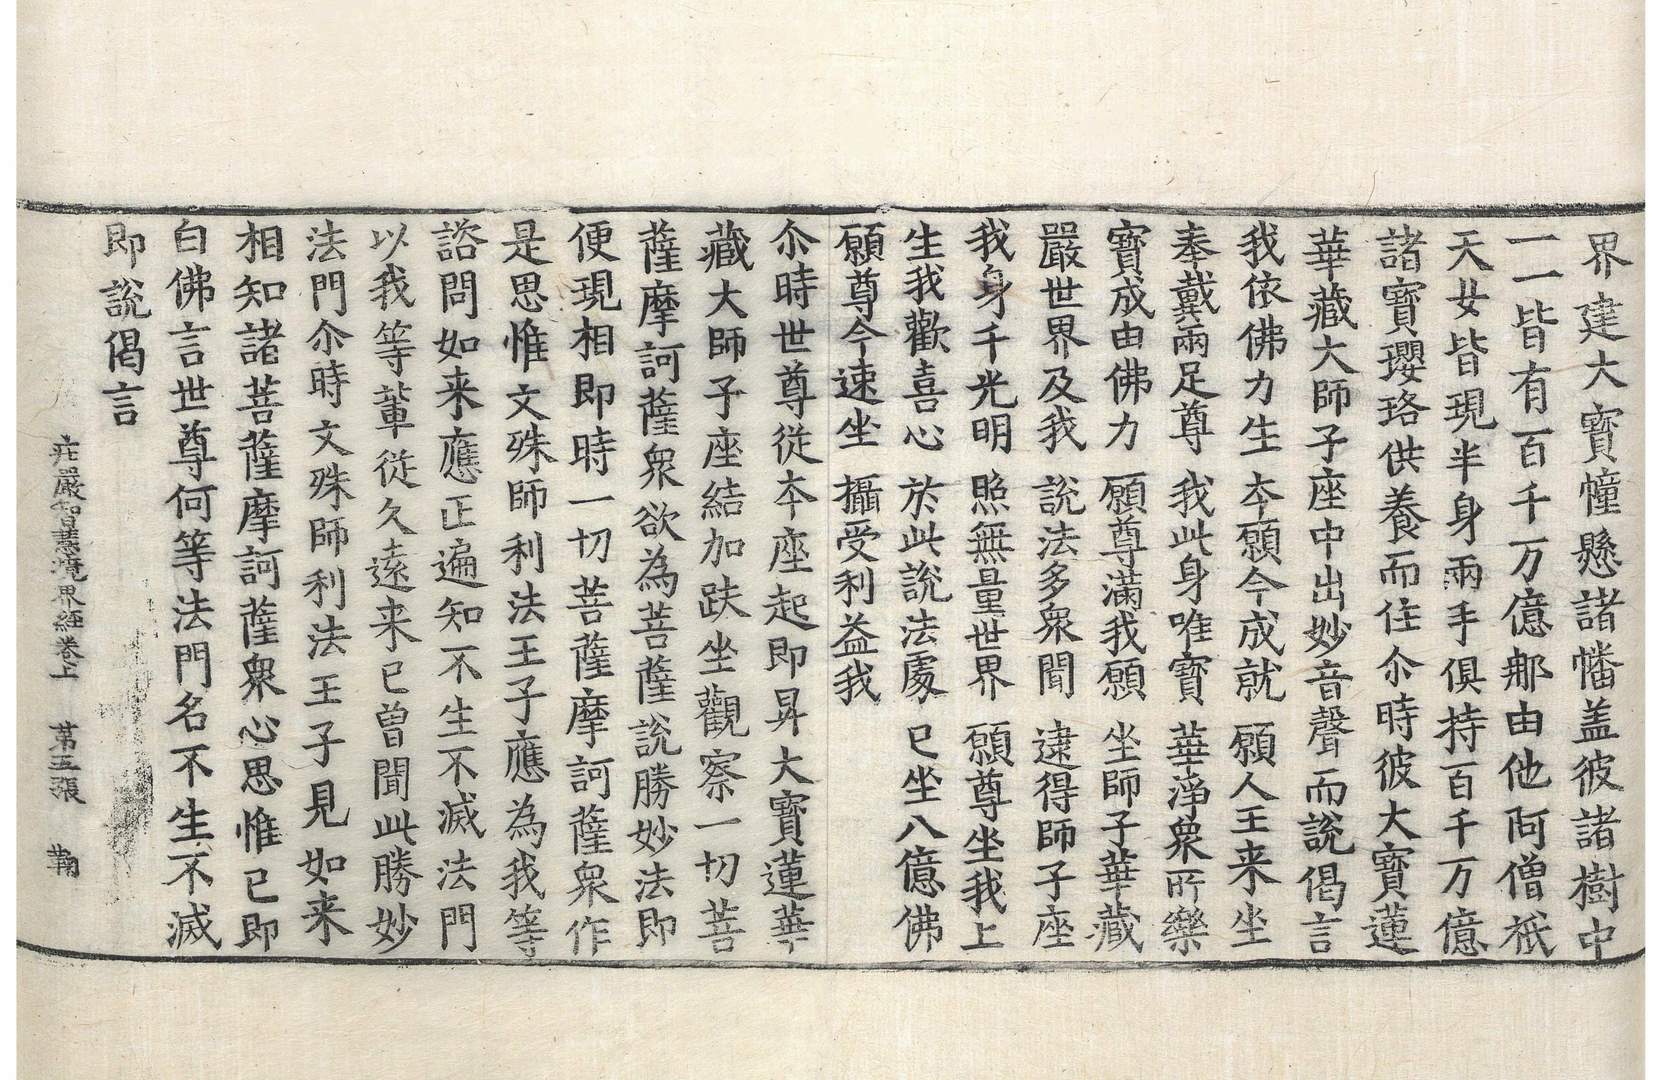 界建大寶幢懸諸幡盖彼諸樹中
一一皆有百千万億那由他阿僧祇
天女皆現半身兩手俱持百千万億
諸寶瓔珞供養而住尒時彼大寶蓮
華藏大師子座中出妙音聲而說偈言
我依佛力生 夲願今成就 願人王来坐
奉戴兩足尊 我此身唯寶 華淨衆所樂
寶成由佛力 願尊滿我願 坐師子華藏
嚴世界及我 說法多衆聞 逮得師子座
我身千光明 照無量世界 願尊坐我上
生我歡喜心 於此說法處 已坐八億佛
願尊今速坐 攝受利益我
尒時世尊從夲座起即昇大寶蓮華
藏大師子座結加趺坐觀察一切菩
薩摩訶薩衆欲為菩薩說勝妙法即
便現相即時一切菩薩摩訶薩衆作
是思惟文殊師利法王子應為我等
諮問如来應正遍知不生不滅法門
以我等輩從久遠来已曾聞此勝妙
法門尒時文殊師利法王子見如来
相知諸菩薩摩訶薩衆心思惟已即
白佛言世尊何等法門名不生不滅
即說偈言
庄嚴智慧境界經卷上 第五張 鞠